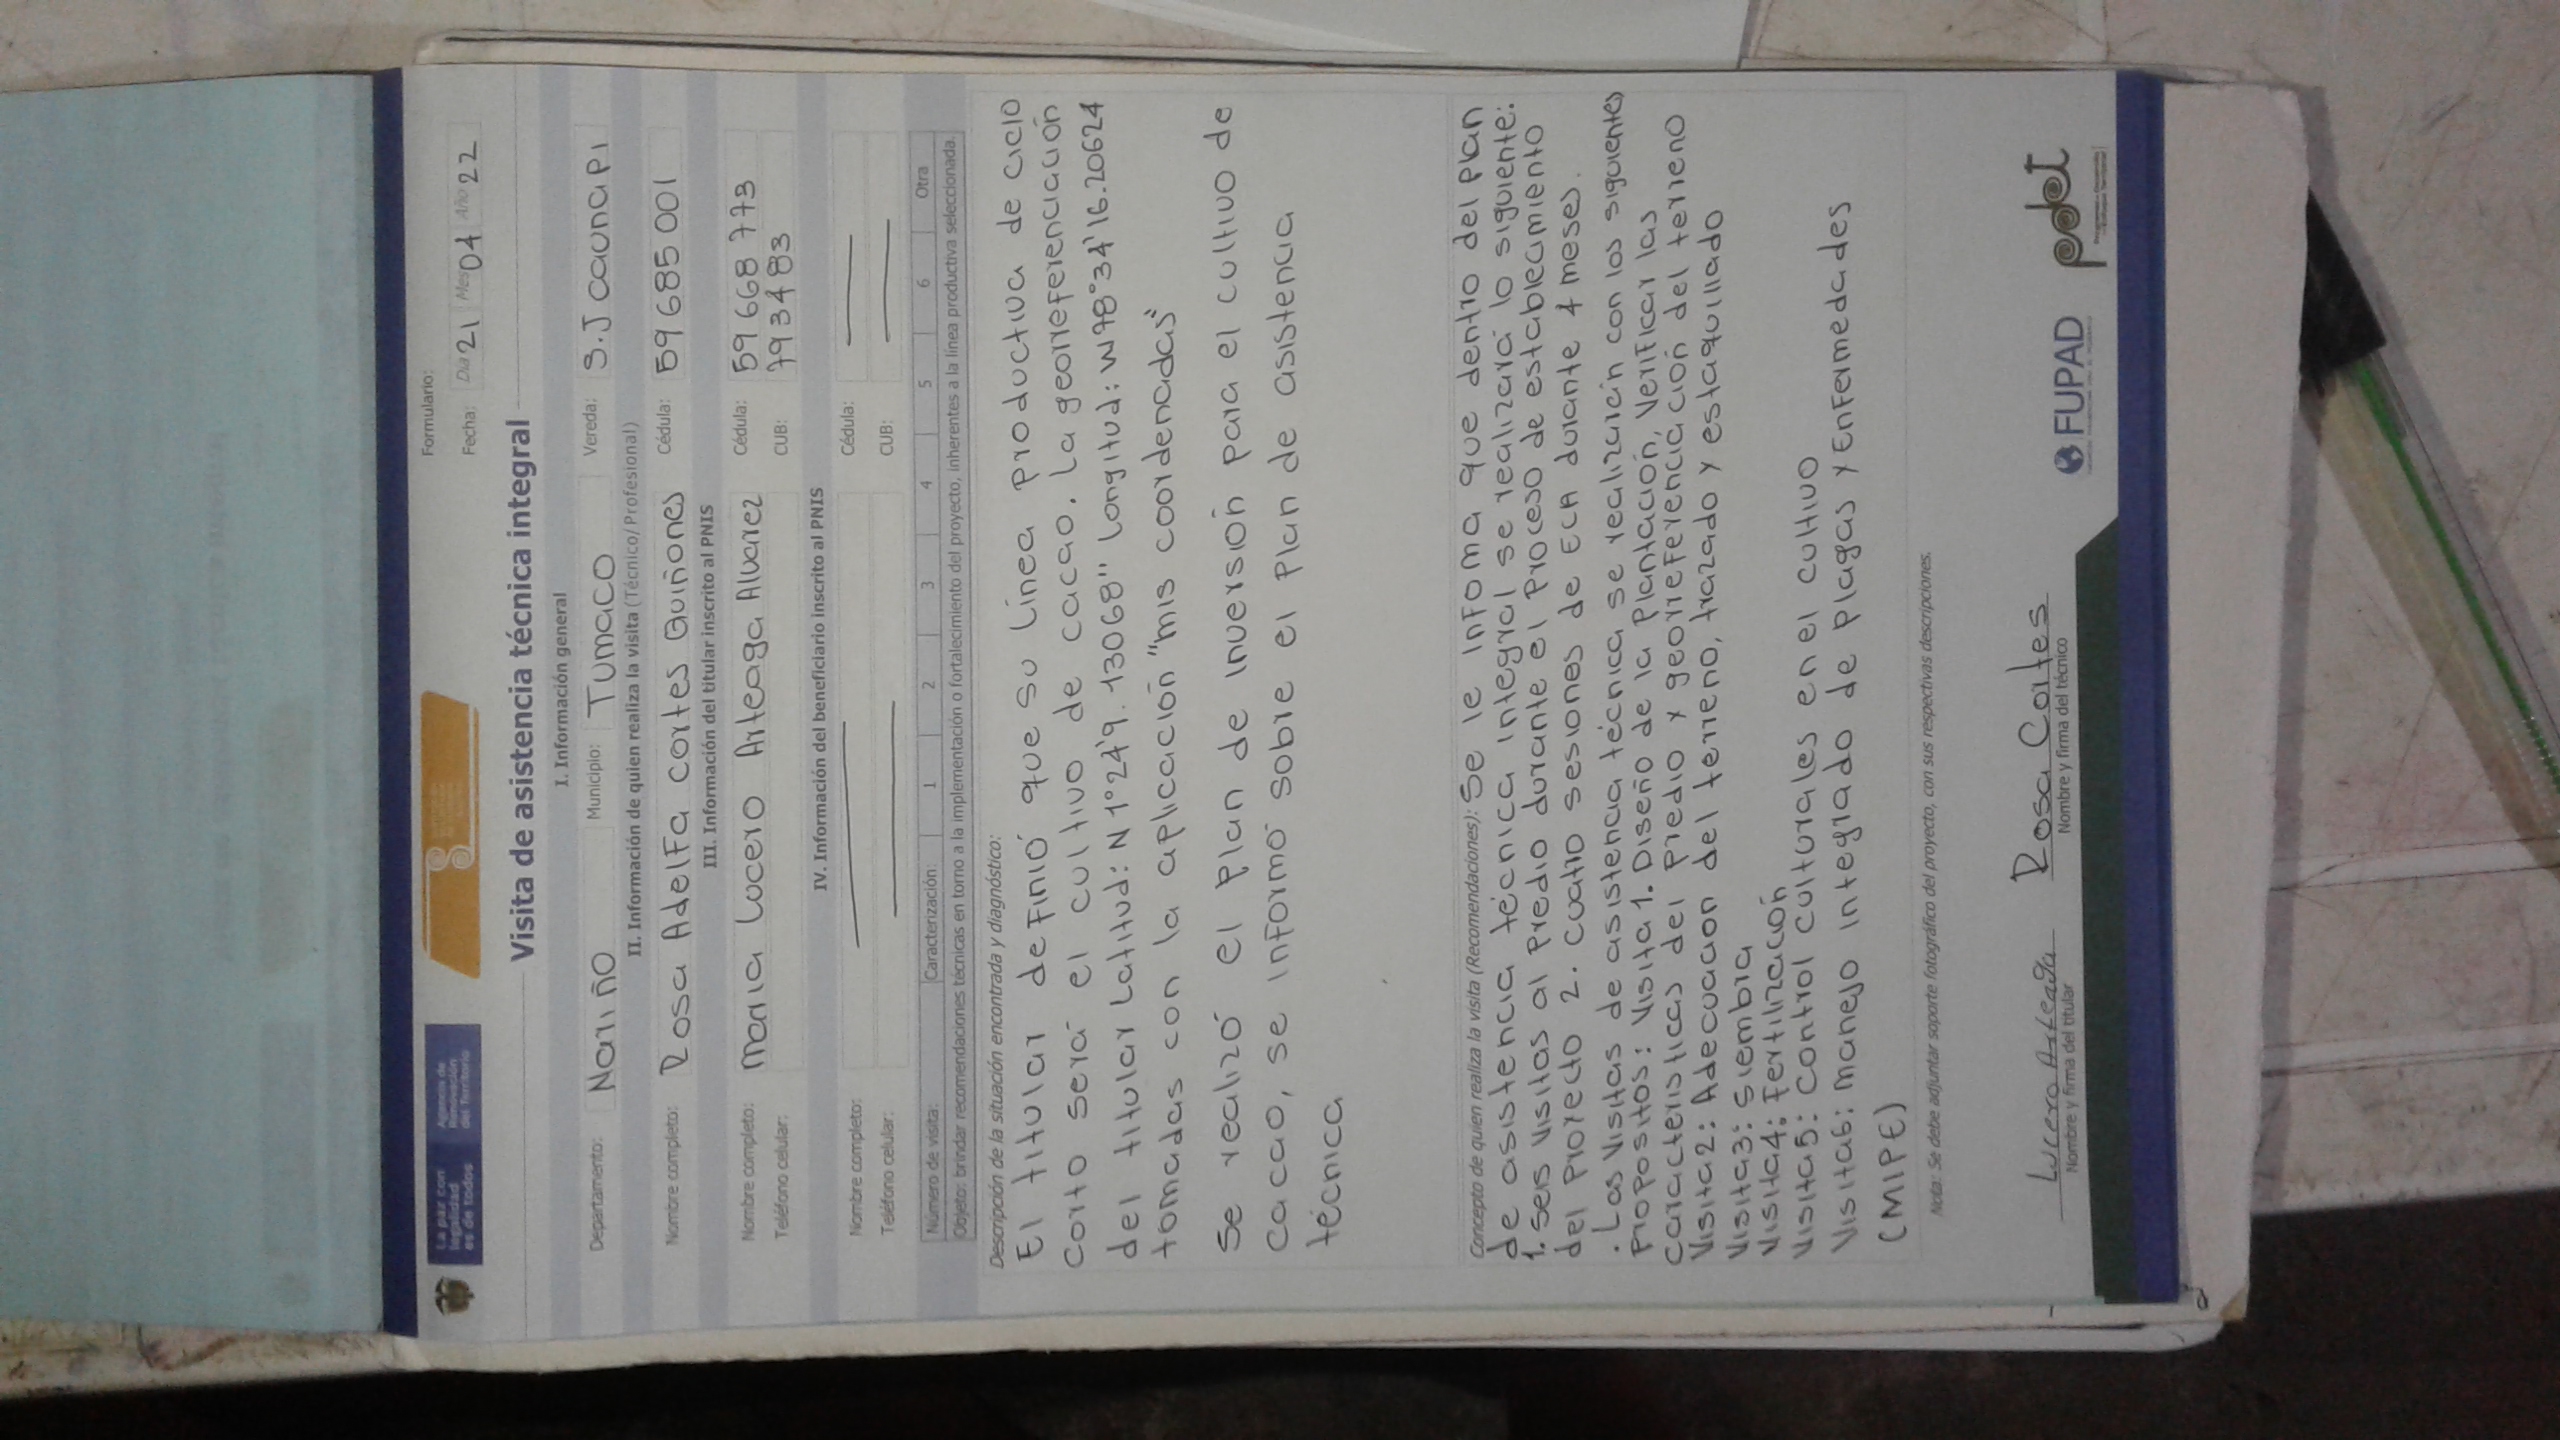 La paz con
legalidad
es de todos
Agencia de
Renovación
del Territorio
Formulario:
Fecha: Día 21 Mes 04 Año 22
Visita de asistencia técnica integral
I. Información general
Departamento: Nariño Municipio: Tumaco Vereda: S.J caunapi
II. Información de quien realiza la visita (Técnico/Profesional)
Nombre completo: Rosa Adelfa cortes Quiñones Cédula: 59685001
III. Información del titular inscrito al PNIS
Nombre completo: Maria Lucero Arteaga Alvarez Cédula: 59668773
Teléfono celular: CUB: 793483
IV. Información del beneficiario inscrito al PNIS
Nombre completo: Cédula:
Teléfono celular: CUB:
Número de visita: Caracterización: 1 2 3 4 5 6 Otra
Objeto: brindar recomendaciones técnicas en torno a la implementación o fortalecimiento del proyecto, inherentes a la línea productiva seleccionada.
Descripción de la situación encontrada y diagnóstico:
El titular definió que su línea productiva de ciclo
corto será el cultivo de cacao. La georreferenciación
del titular Latitud: N 1°24'9.13068" Longitud: W78°34'16.20624
tomadas con la aplicación "mis coordenadas"
Se realizó el plan de inversión para el cultivo de
cacao, se informó sobre el plan de asistencia
técnica
Concepto de quien realiza la visita (Recomendaciones): Se le informa que dentro del plan
de asistencia técnica integral se realizará lo siguiente:
1. Seis visitas al predio durante el proceso de establecimiento
del proyecto 2. cuatro sesiones de ECA durante 4 meses.
. Las visitas de asistencia técnica se realizarán con los siguientes
propositos: Visita 1. Diseño de la plantación, Verificar las
características del predio y georreferenciación del terreno
Visita 2: Adecuacion del terreno, trazado y estaquillado
Visita 3: Siembra
Visita 4: Fertilización
Visita 5: Control culturales en el cultivo
Visita 6: Manejo integrado de plagas y Enfermedades
(MIPE)
Nota: Se debe adjuntar soporte fotográfico del proyecto, con sus respectivas descripciones.
Lucero Arteaga Rosa Cortes
Nombre y firma del titular Nombre y firma del técnico
FUPAD pdet